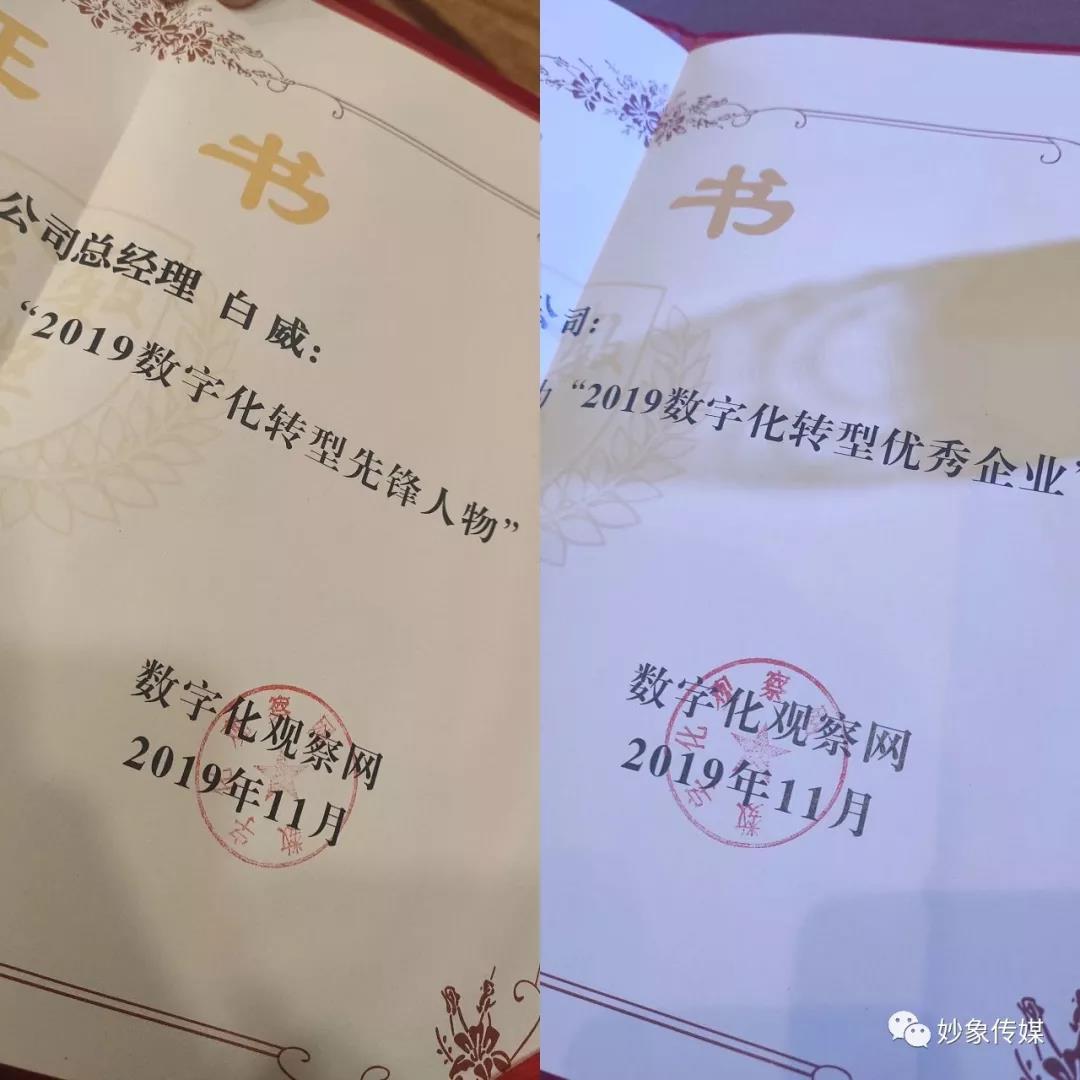 书
公司总经理 白威：
“2019数字化转型先锋人物”
数字化观察网
2019年11月
书
公司：
“2019数字化转型优秀企业”
数字化观察网
2019年11月
妙象传媒